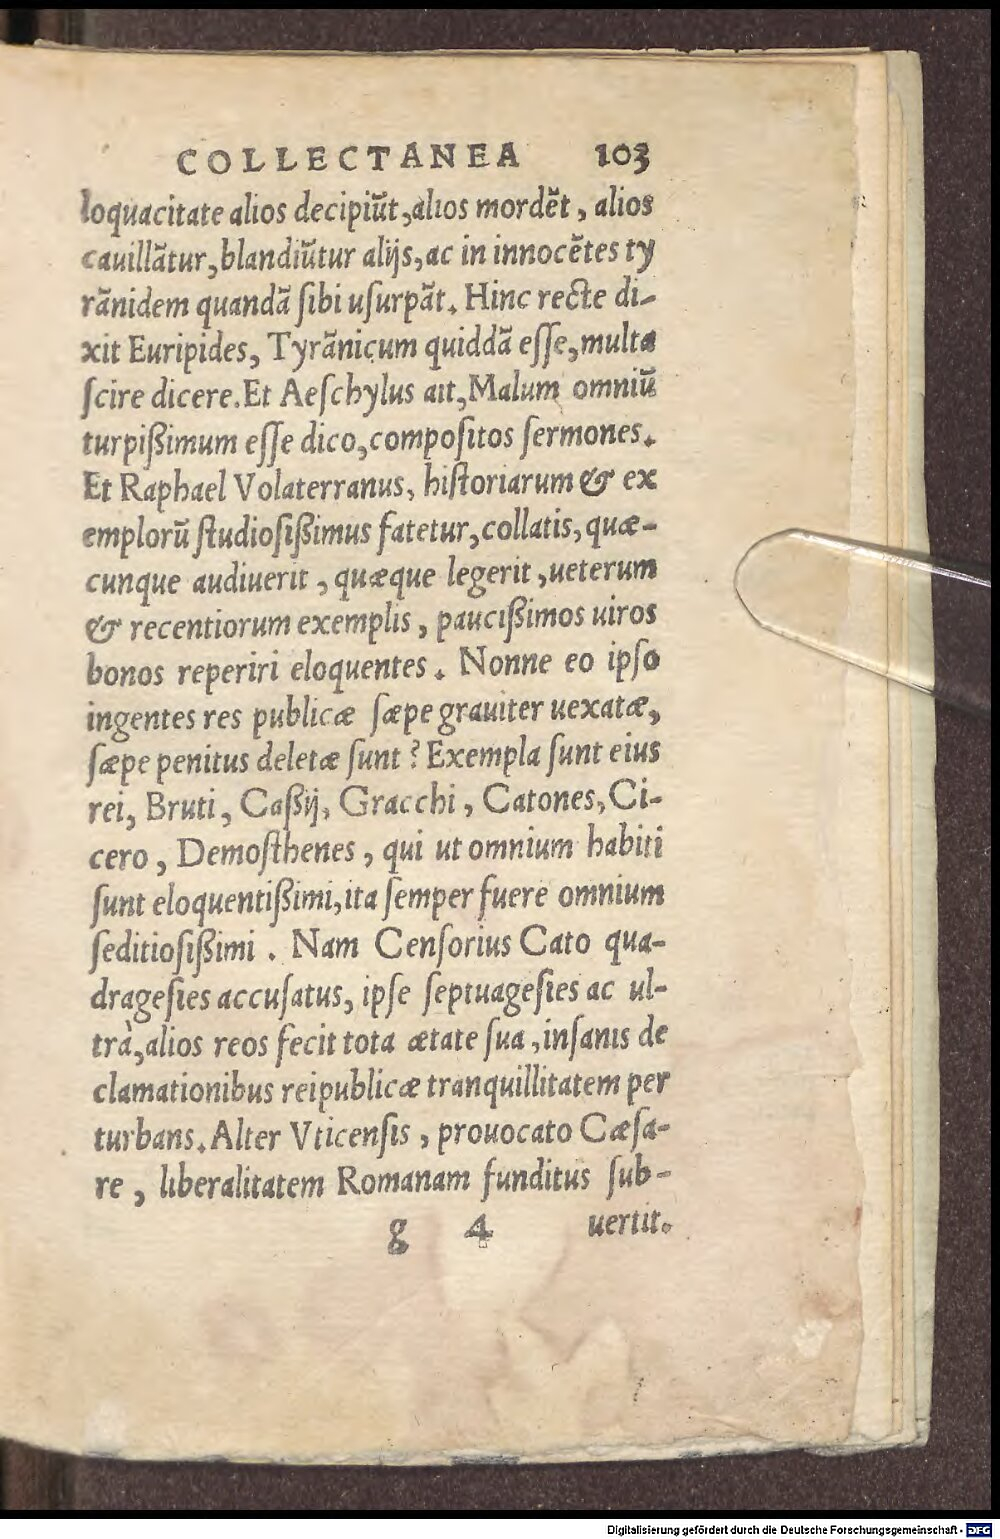 COLLECTANEA 103
loquacitate alios decipiũt, alios mordẽt, alios
cauillãtur, blandiũtur alijs, ac in innocẽtes ty
rãnidem quandã ſibi uſurpãt. Hinc recte di-
xit Euripides, Tyrãnicum quiddã eſſe, multa
ſcire dicere. Et Aeſchylus ait, Malum omniũ
turpißimum eſſe dico, compoſitos ſermones.
Et Raphael Volaterranus, hiſtoriarum & ex
emplorũ ſtudioſißimus fatetur, collatis, quæ-
cunque audiuerit, quæque legerit, ueterum
& recentiorum exemplis, paucißimos uiros
bonos reperiri eloquentes. Nonne eo ipſo
ingentes res publicæ ſæpe grauiter uexatæ,
ſæpe penitus deletæ ſunt? Exempla ſunt eius
rei, Bruti, Caßij, Gracchi, Catones, Ci-
cero, Demoſthenes, qui ut omnium habiti
ſunt eloquentißimi, ita ſemper fuere omnium
ſeditioſißimi. Nam Cenſorius Cato qua-
drageſies accuſatus, ipſe ſeptuageſies ac ul-
trà, alios reos fecit tota ætate ſua, inſanis de
clamationibus reipublicæ tranquillitatem per
turbans. Alter Vticenſis, prouocato Cæſa-
re, liberalitatem Romanam funditus ſub-
g 4 uertit.
Digitalisierung gefördert durch die Deutsche Forschungsgemeinschaft - DFG